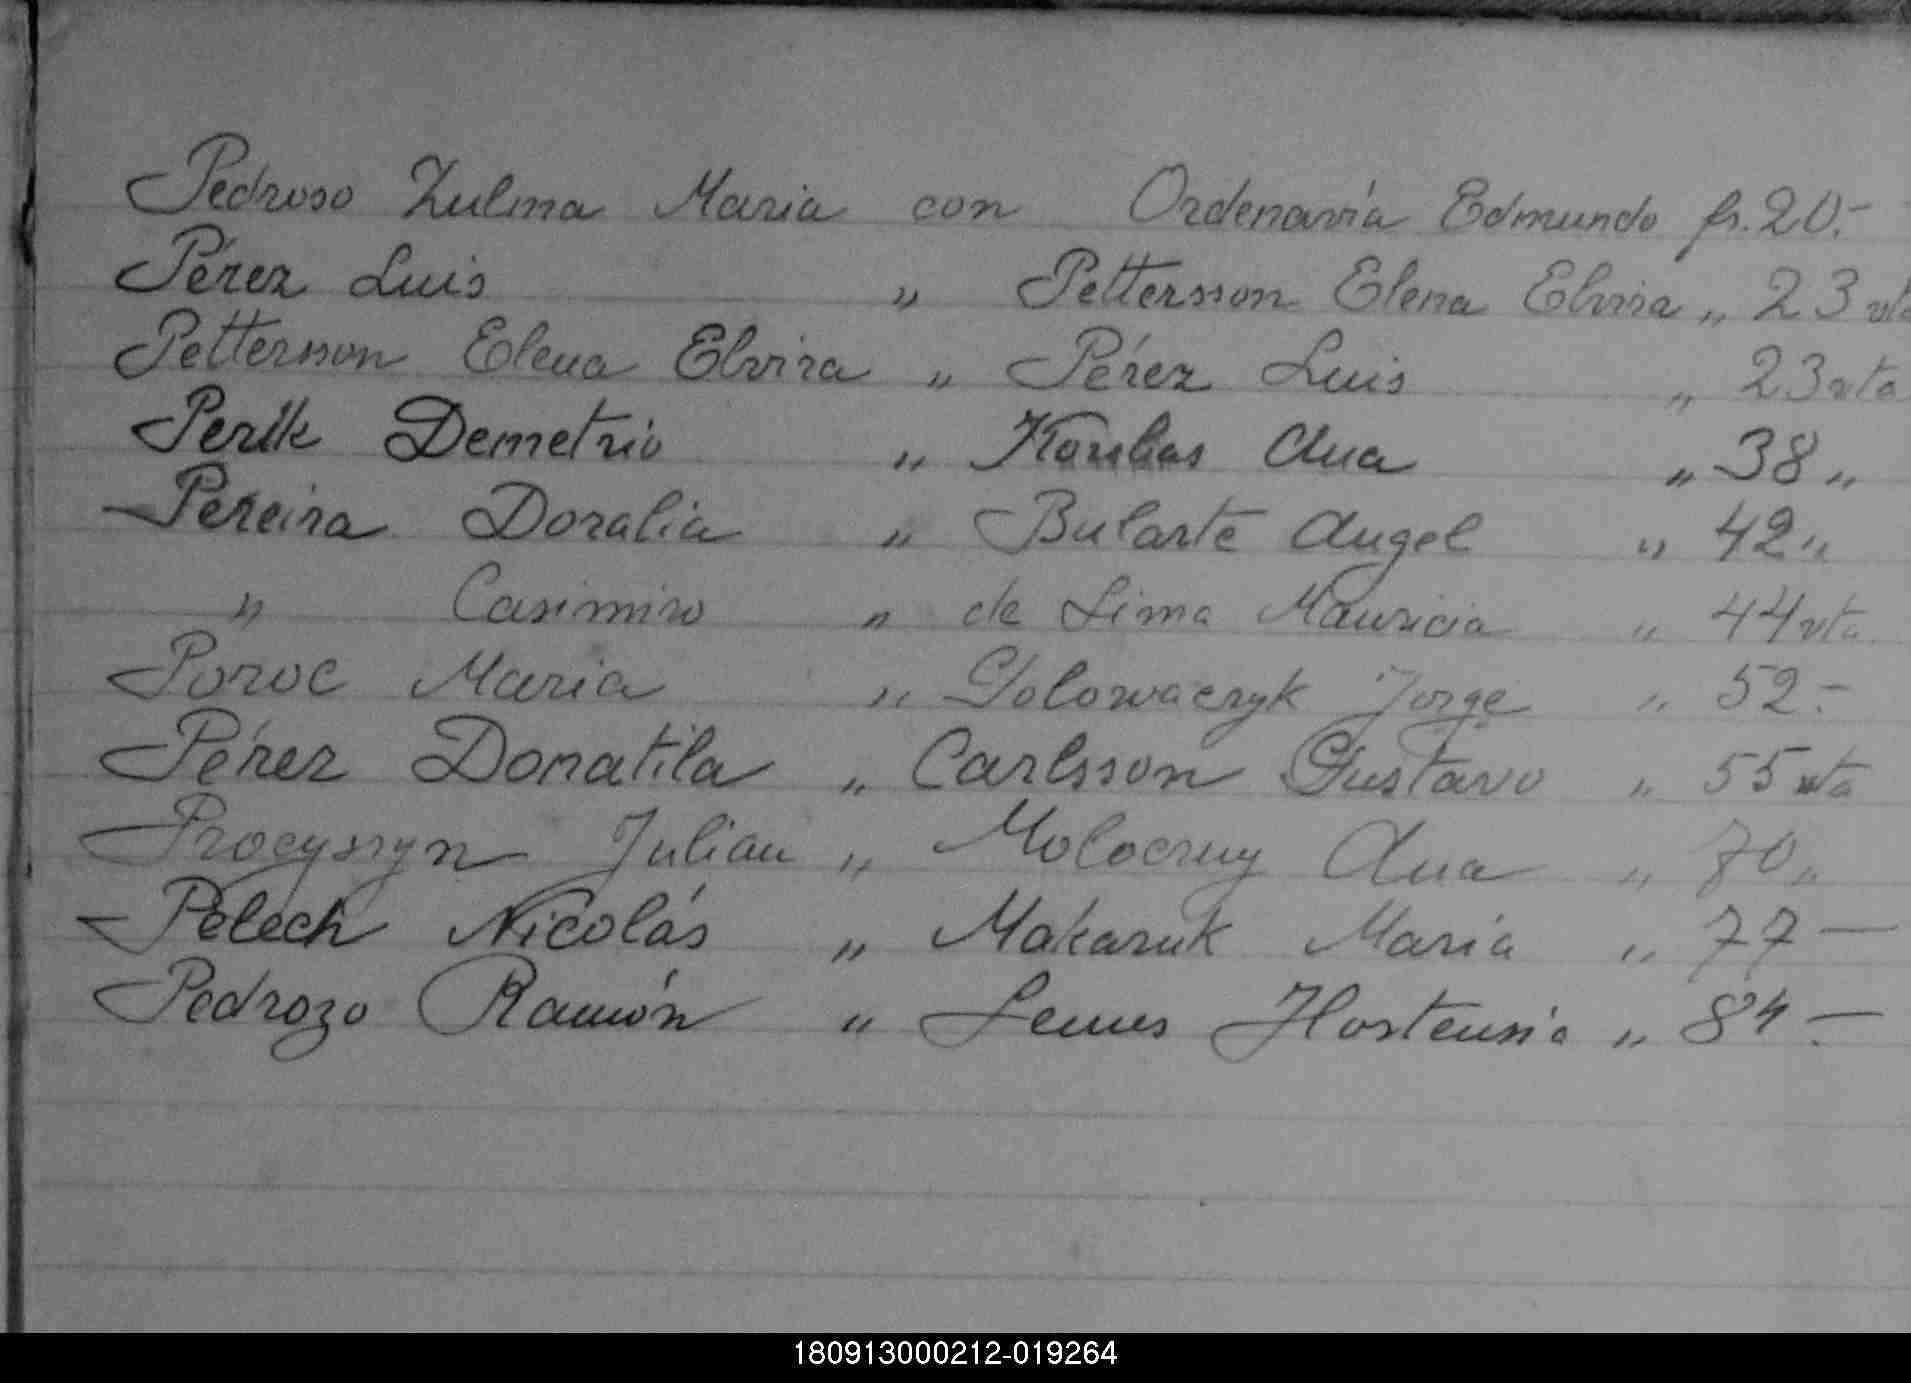 Pedroso Zulma Maria con Ordenavía Edmundo fs. 20.-
Pérez Luis " Pettersson Elena Elvira " 23 vta
Pettersson Elena Elvira " Pérez Luis " 23 vta
Perik Demetrio " Ana " 38 "
Pereira Doralia " Bularte Angel " 42 "
" Casimiro " de Lima Mauricia " 44 vta
Poroc Maria " Golowaczyk Jorge " 52.-
Pérez Donatila " Carlsson Gustavo " 55 vta
Procyszyn Julian " Moloczny Ana " 70 "
Pelech Nicolás " Makaruk Maria " 77 —
Pedrozo Ramón " Lemes Hortensia " 84 —
180913000212-019264